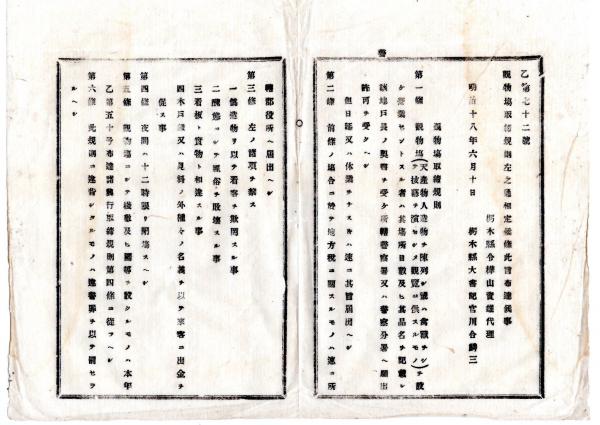 乙第七十二號
觀物塲取締規則左之通相定候條此旨布達候事
明治十八年六月十日
栃木縣令樺山資雄代理
栃木縣大書記官川合鱗三
觀物塲取締規則
第一條 觀物塲(天産物人造物ヲ陳列シ或ハ禽獸ヲシテ技藝ヲ演セシメ觀覽ニ供スルモノ)ヲ設
ケ營業セントスル者ハ其塲所日數及ヒ其品名ヲ記載シ
該地戸長ノ奥書ヲ受ケ所轄警察署又ハ警察分署ヘ届出
許可ヲ受クヘシ
但日延又ハ休業セントスルトキハ速ニ其旨届出ヘシ
第二條 前條ノ塲合ニ於テ地方税ニ關スルモノハ速ニ所
轄郡役所ヘ届出ヘシ
第三條 左ノ諸項ヲ禁ス
一偽造物ヲ以テ看客ヲ欺罔スル事
二醜態ニシテ風俗ヲ敗壞スル事
三看板ト實物ト相違スル事
四木戸錢又ハ見料ノ外種々ノ名義ヲ以テ來客ニ出金ヲ
促ス事
第四條 夜間ハ十二時限リ閉塲スヘシ
第五條 觀物塲ニシテ棧敷及ヒ圍等ヲ設クルモノハ本年
乙第五十号布達諸興行取締規則第四條ニ從フヘシ
第六條 此規則ニ違背シタルモノハ違警罪ヲ以テ罰セラ
ルヘシ